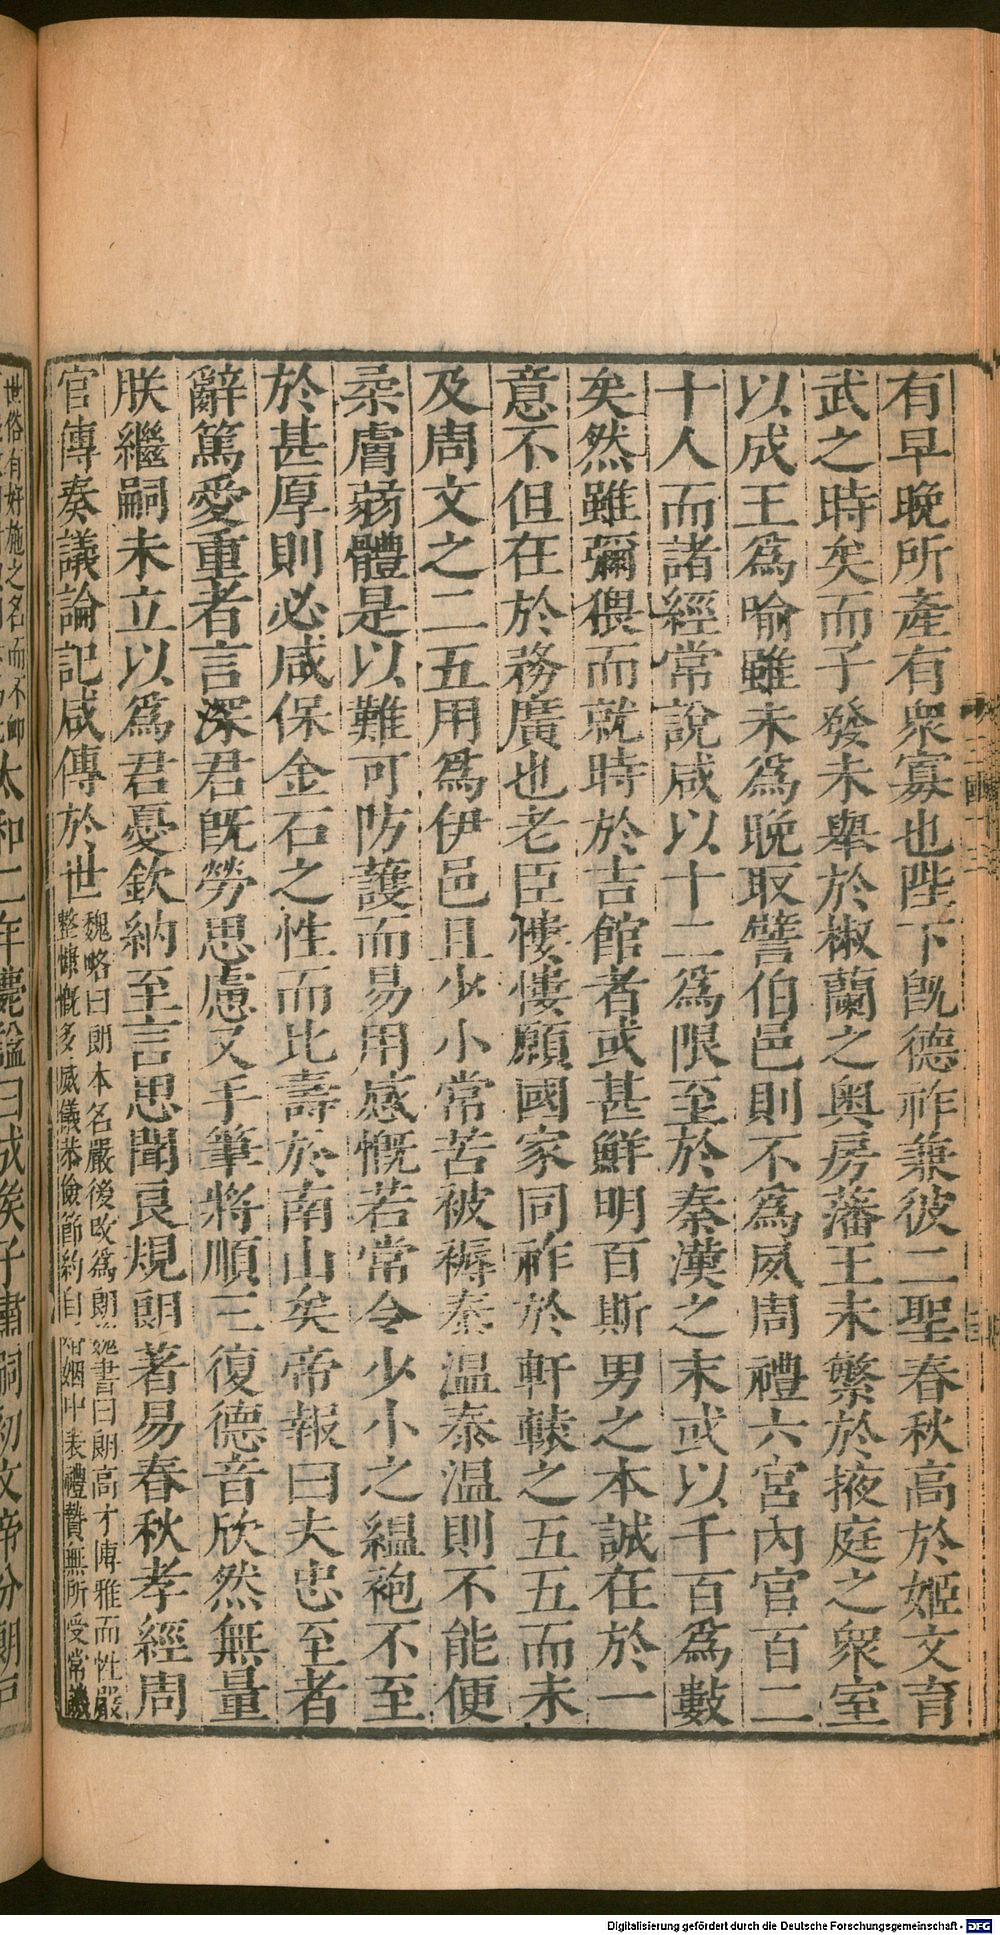 有早晚所產有衆寡也陛下旣德祚兼彼二聖春秋高於姬文育
武之時矣而子發未舉於椒蘭之奥房藩王未繁於掖庭之衆室
以成王爲喻雖未爲晚取譬伯邑則不爲夙周禮六宮内官百二
十人而諸經常說咸以十二爲限至於秦漢之末或以千百爲數
矣然雖彌猥而就時於吉館者或甚鮮明百斯男之本誠在於一
意不但在於務廣也老臣慺慺願國家同祚於軒轅之五五而未
及周文之二五用爲伊邑且少小常苦被褥泰温泰温則不能便
柔膚弱體是以難可防護而易用感慨若常令少小之緼袍不至
於甚厚則必咸保金石之性而比壽於南山矣帝報曰夫忠至者
辭篤愛重者言深君旣勞思慮又手筆將順三復德音欣然無量
朕繼嗣未立以爲君憂欽納至言思聞良規朗著易春秋孝經周
官傳奏議論記咸傳於世
魏略曰朗本名嚴後改爲朗魏書曰朗高才博雅而性嚴
整慷慨多威儀恭儉節約自婚姻中表禮贄無所受常譏
世俗有好施之名而不卹
太和二年薨諡曰成侯子肅嗣初文帝分朗戸
Digitalisierung gefördert durch die Deutsche Forschungsgemeinschaft - DFG